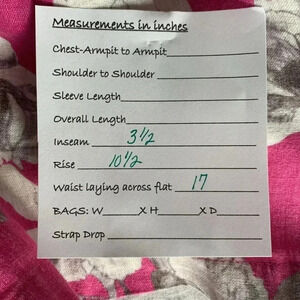 Measurements in inches
Chest-Armpit to Armpit
Shoulder to Shoulder
Sleeve Length
Overall Length
Inseam 3 1/2
Rise 10 1/2
Waist laying across flat 17
BAGS: W X H X D
Strap Drop